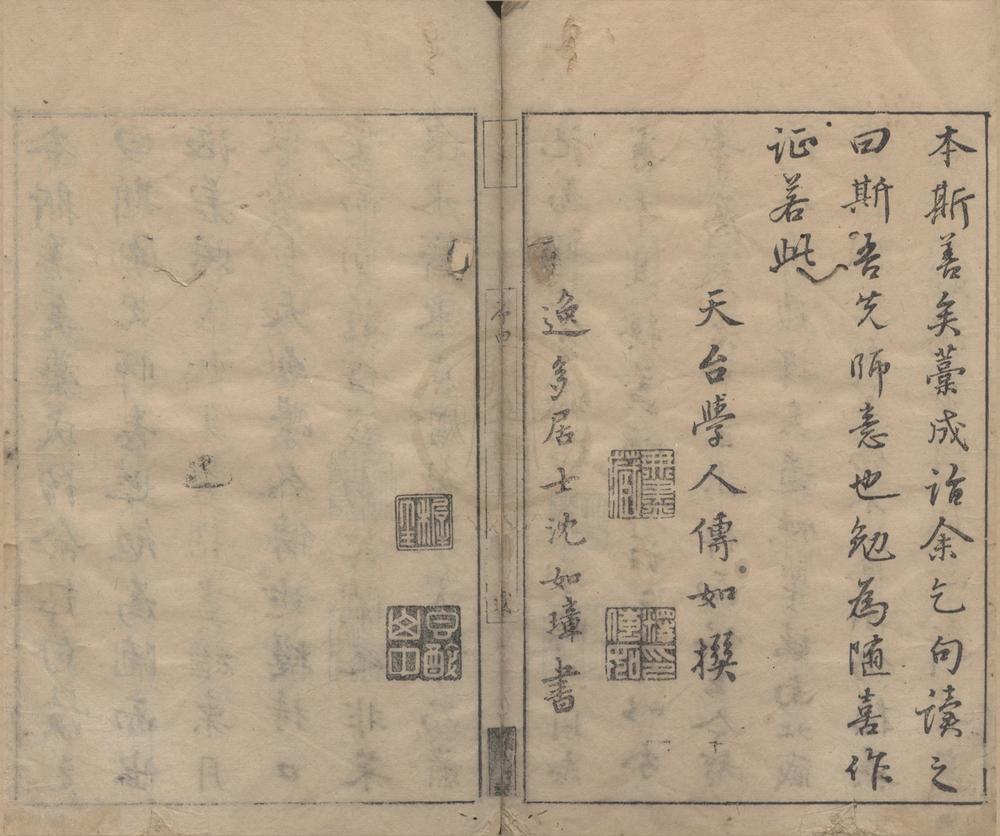 本斯善矣藁成詣余乞句讀之
曰斯吾先師意也勉為随喜作
证若此
天台學人傳如撰
逸多居士沈如璋書
序四